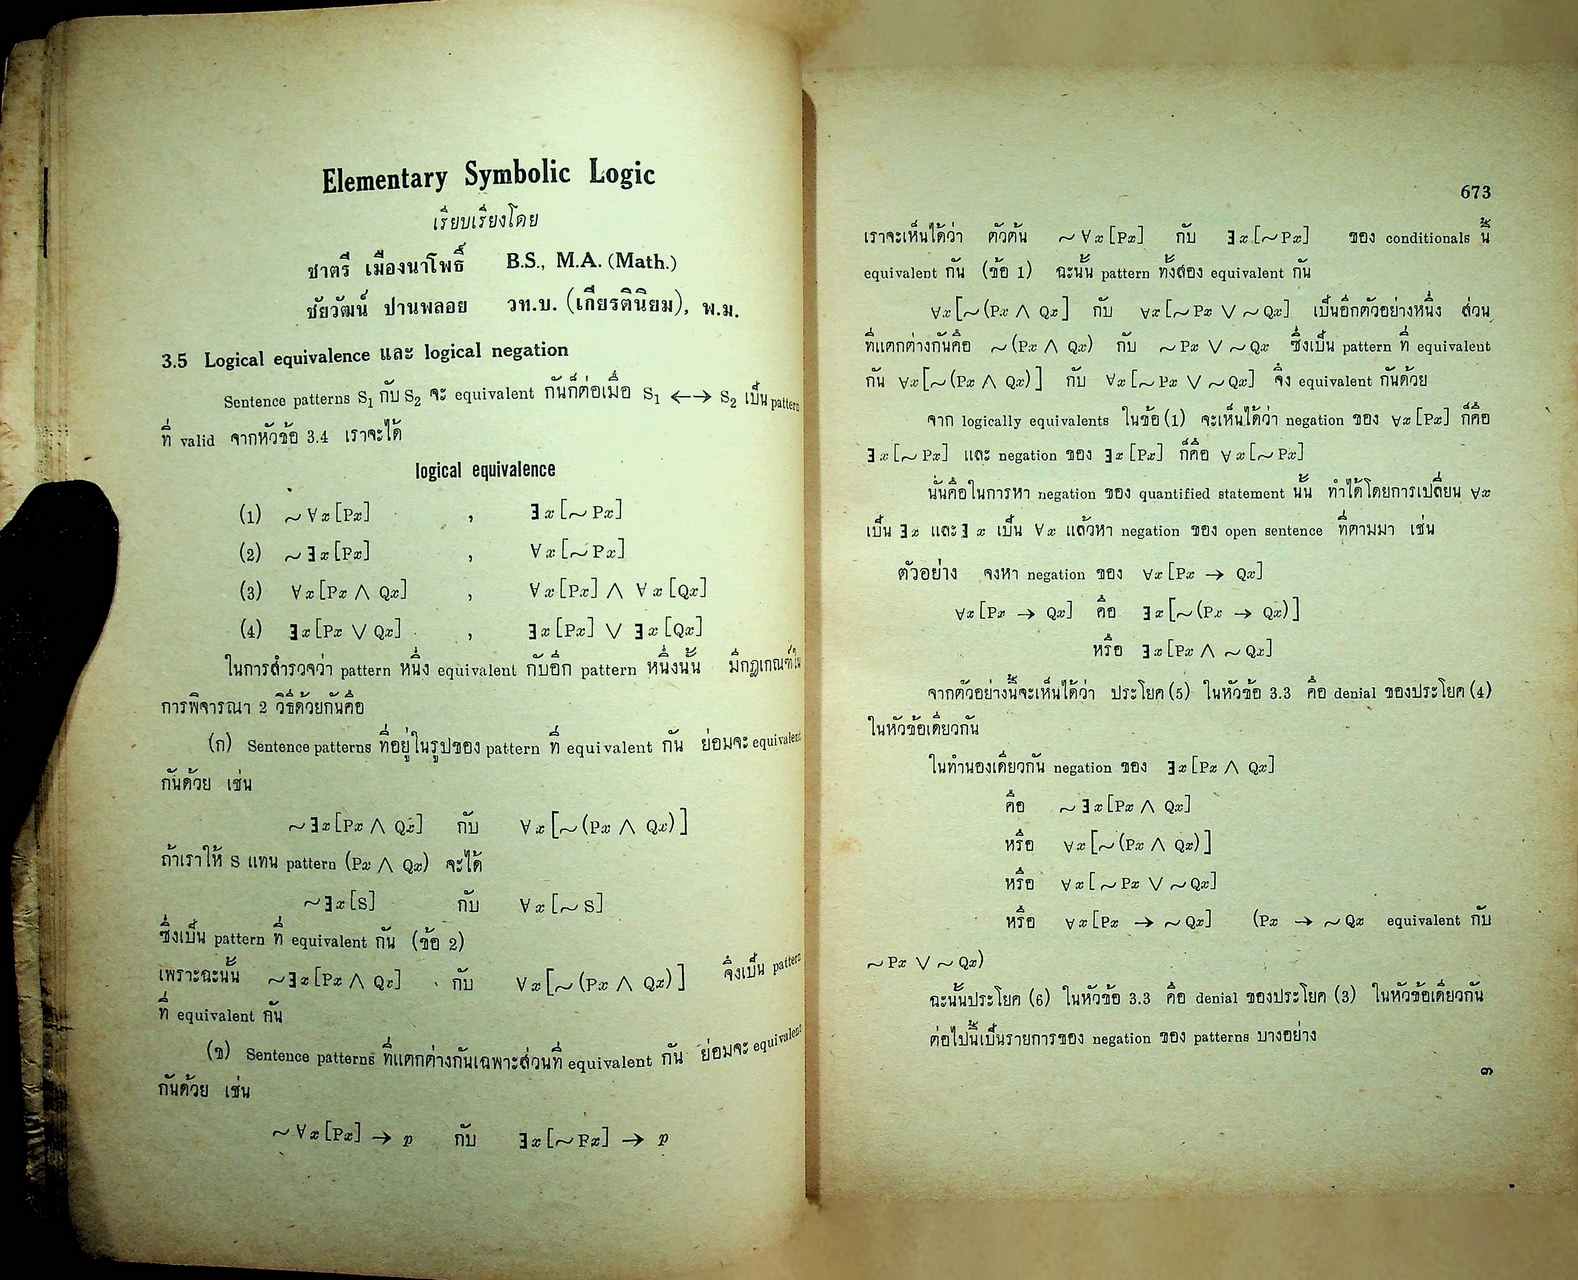 Elementary Symbolic Logic
เรียบเรียงโดย
ชาตรี เมืองนาโพธิ์ B.S., M.A. (Math.)
ชัยวัฒน์ ปานพลอย วท.บ. (เกียรตินิยม), พ.ม.
3.5 Logical equivalence และ logical negation
Sentence patterns S₁ กับ S₂ จะ equivalent กันก็ต่อเมื่อ S₁ ⟷ S₂ เป็น pattern
ที่ valid จากหัวข้อ 3.4 เราจะได้
logical equivalence
(1) ~∀x[Px] , ∃x[~Px]
(2) ~∃x[Px] , ∀x[~Px]
(3) ∀x[Px ∧ Qx] , ∀x[Px] ∧ ∀x[Qx]
(4) ∃x[Px ∨ Qx] , ∃x[Px] ∨ ∃x[Qx]
ในการสำรวจว่า pattern หนึ่ง equivalent กับอีก pattern หนึ่งนั้น มีกฎเกณฑ์ใน
การพิจารณา 2 วิธีด้วยกันคือ
(ก) Sentence patterns ที่อยู่ในรูปของ pattern ที่ equivalent กัน ย่อมจะ equivalent
กันด้วย เช่น
~∃x[Px ∧ Qx] กับ ∀x[~(Px ∧ Qx)]
ถ้าเราให้ S แทน pattern (Px ∧ Qx) จะได้
~∃x[S] กับ ∀x[~S]
ซึ่งเป็น pattern ที่ equivalent กัน (ข้อ 2)
เพราะฉะนั้น ~∃x[Px ∧ Qx] กับ ∀x[~(Px ∧ Qx)] จึงเป็น pattern
ที่ equivalent กัน
(ข) Sentence patterns ที่แตกต่างกันเฉพาะส่วนที่ equivalent กัน ย่อมจะ equivalent
กันด้วย เช่น
~∀x[Px] → p กับ ∃x[~Px] → p
673
เราจะเห็นได้ว่า ตัวต้น ~∀x[Px] กับ ∃x[~Px] ของ conditionals นี้
equivalent กัน (ข้อ 1) ฉะนั้น pattern ทั้งสอง equivalent กัน
∀x[~(Px ∧ Qx] กับ ∀x[~Px ∨ ~Qx] เป็นอีกตัวอย่างหนึ่ง ส่วน
ที่แตกต่างกันคือ ~(Px ∧ Qx) กับ ~Px ∨ ~Qx ซึ่งเป็น pattern ที่ equivalent
กัน ∀x[~(Px ∧ Qx)] กับ ∀x[~Px ∨ ~Qx] จึง equivalent กันด้วย
จาก logically equivalents ในข้อ (1) จะเห็นได้ว่า negation ของ ∀x[Px] ก็คือ
∃x[~Px] และ negation ของ ∃x[Px] ก็คือ ∀x[~Px]
นั่นคือในการหา negation ของ quantified statement นั้น ทำได้โดยการเปลี่ยน ∀x
เป็น ∃x และ ∃x เป็น ∀x แล้วหา negation ของ open sentence ที่ตามมา เช่น
ตัวอย่าง จงหา negation ของ ∀x[Px → Qx]
∀x[Px → Qx] คือ ∃x[~(Px → Qx)]
หรือ ∃x[Px ∧ ~Qx]
จากตัวอย่างนี้จะเห็นได้ว่า ประโยค (5) ในหัวข้อ 3.3 คือ denial ของประโยค (4)
ในหัวข้อเดียวกัน
ในทำนองเดียวกัน negation ของ ∃x[Px ∧ Qx]
คือ ~∃x[Px ∧ Qx]
หรือ ∀x[~(Px ∧ Qx)]
หรือ ∀x[~Px ∨ ~Qx]
หรือ ∀x[Px → ~Qx] (Px → ~Qx equivalent กับ
~Px ∨ ~Qx)
ฉะนั้นประโยค (6) ในหัวข้อ 3.3 คือ denial ของประโยค (3) ในหัวข้อเดียวกัน
ต่อไปนี้เป็นรายการของ negation ของ patterns บางอย่าง
๓